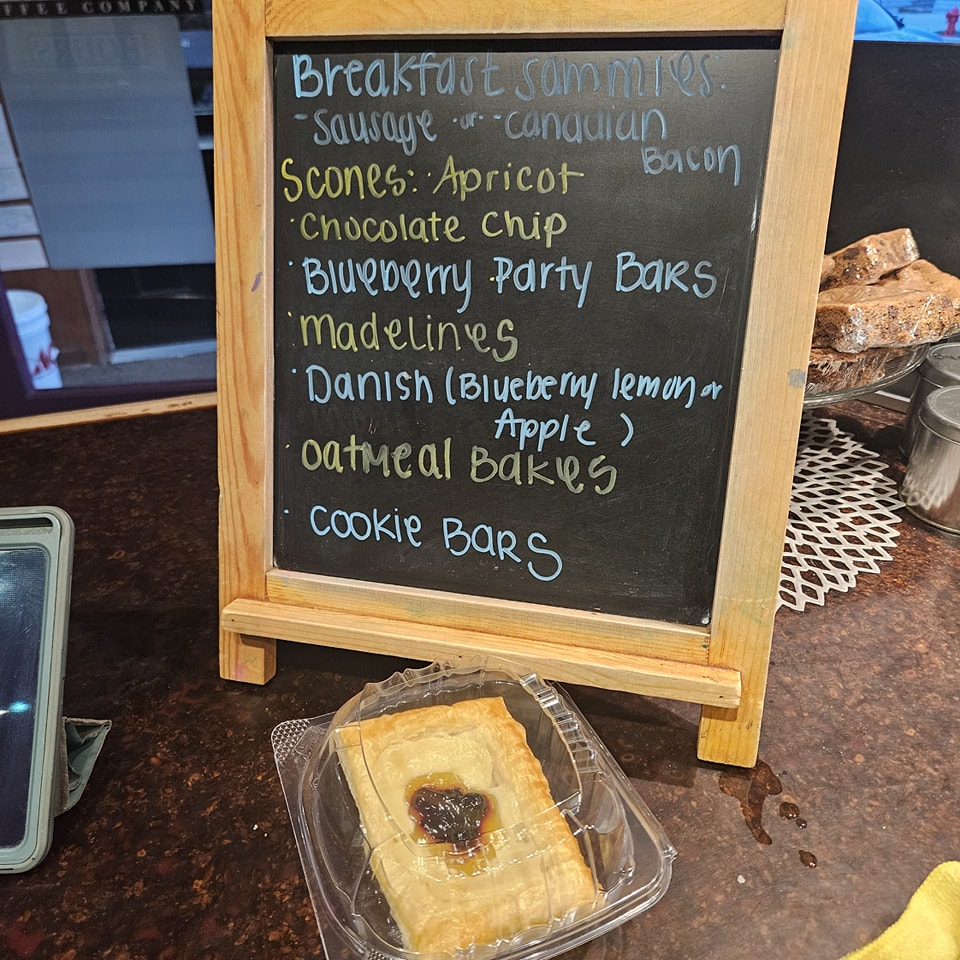 FFEE COMPANY
Breakfast sammies:
- Sausage - or - Canadian
Bacon
Scones: · Apricot
· Chocolate Chip
· Blueberry Party Bars
· Madelines
· Danish (Blueberry lemon or
Apple )
· Oatmeal Bakies
· Cookie Bars